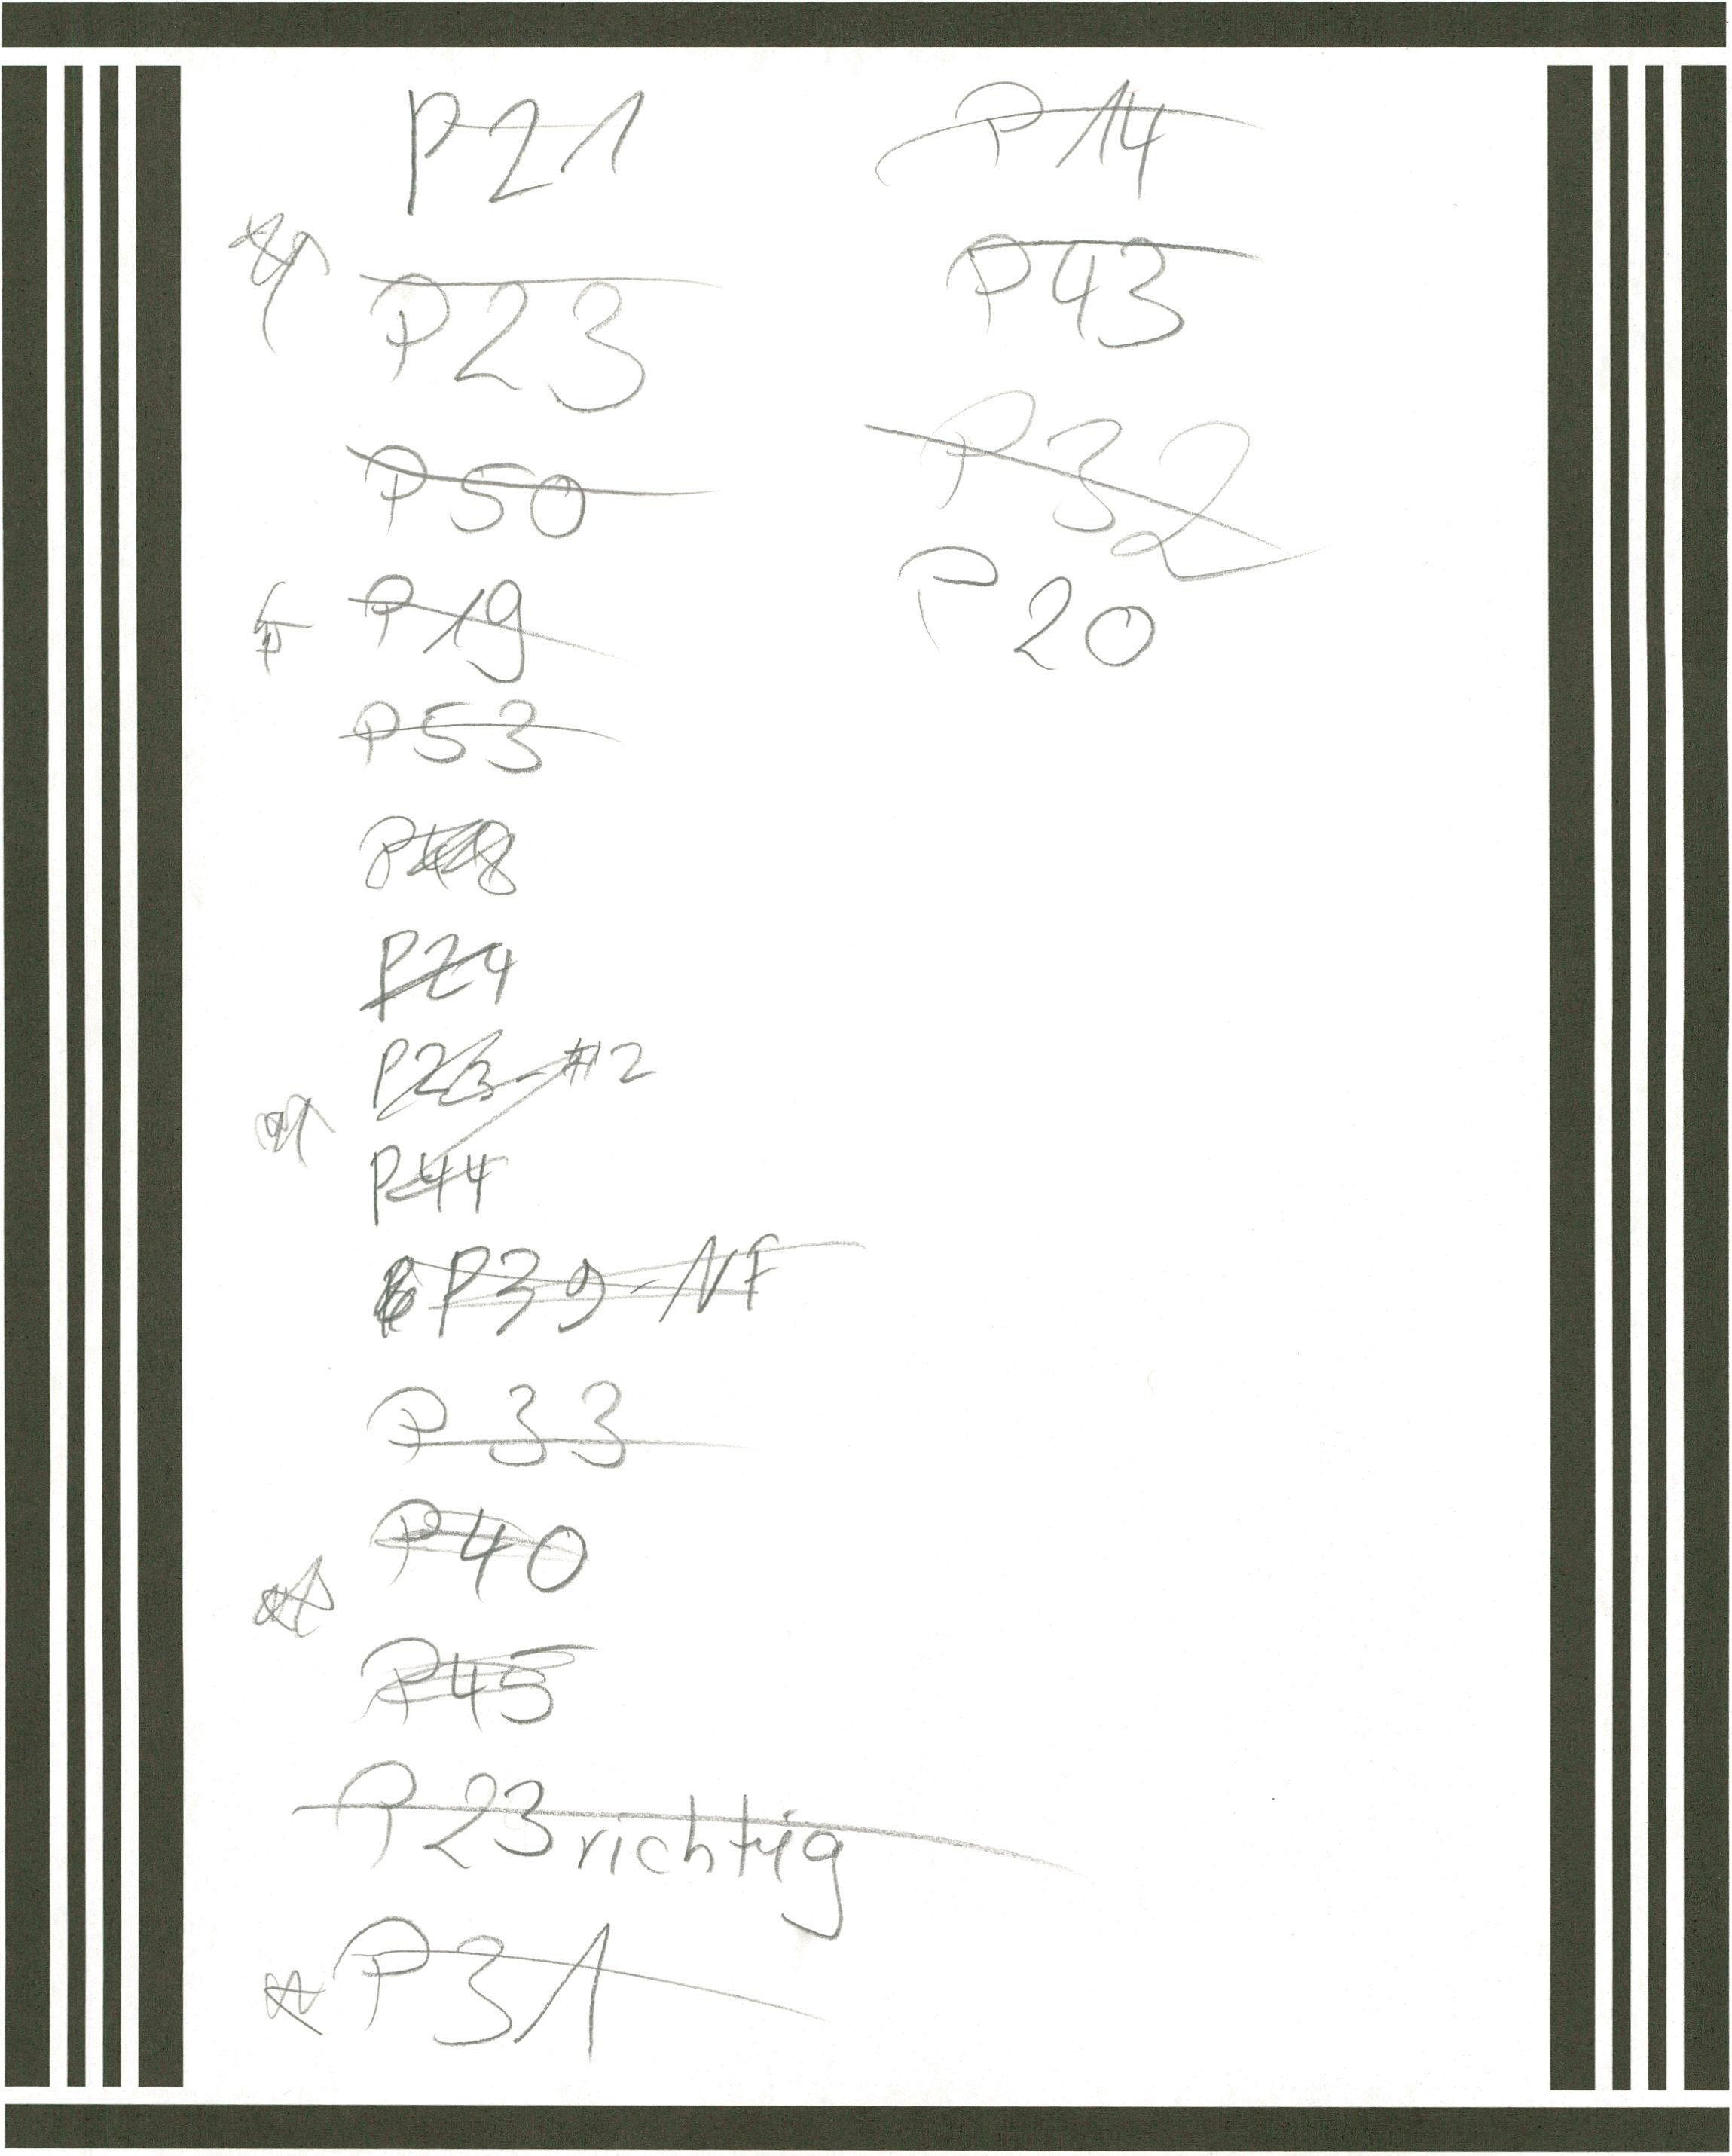 P21
P23
P50
P19
P53
P48
P24
P23 #2
P44
P39-NF
P33
P40
P45
P23 richtig
P31
P14
P43
P32
P20